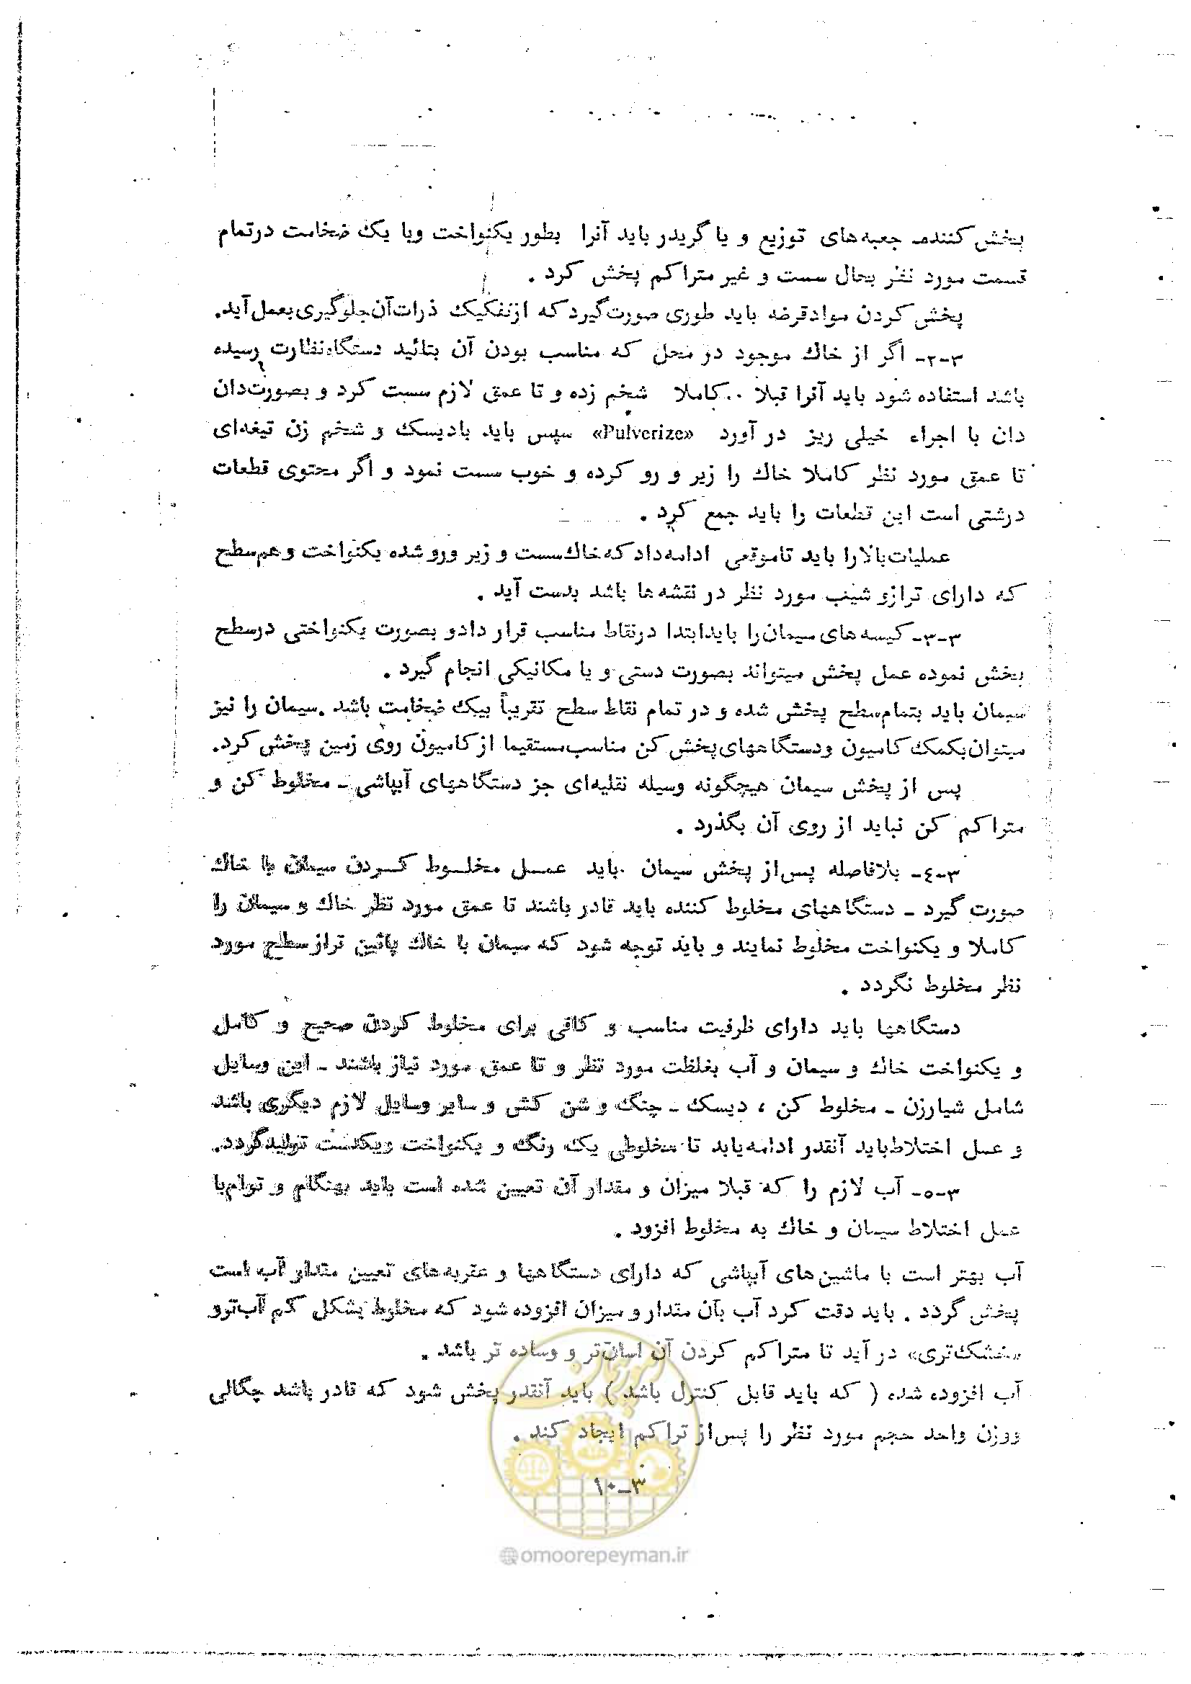 پخش کننده‌ـ جعبه‌های توزیع و یا گریدر باید آنرا بطور یکنواخت وبا یک ضخامت درتمام
قسمت مورد نظر بحال سست و غیر متراکم پخش کرد .
پخش کردن موادقرضه باید طوری صورت‌گیرد که ازتفکیک ذرات‌آن‌جلوگیری‌بعمل‌آید.
۳-۲- اگر از خاک موجود در محل که مناسب بودن آن بتائید دستگاه‌نظارت رسیده
باشد استفاده شود باید آنرا قبلا کاملا شخم زده و تا عمق لازم سست کرد و بصورت‌دان
دان با اجراء خیلی ریز در آورد «Pulverize» سپس باید بادیسک و شخم زن تیغه‌ای
تا عمق مورد نظر کاملا خاک را زیر و رو کرده و خوب سست نمود و اگر محتوی قطعات
درشتی است این قطعات را باید جمع کرد .
عملیات‌بالارا باید تاموقعی ادامه‌داد که‌خاک‌سست و زیر وروشده یکنواخت وهم‌سطح
که دارای ترازو شیب مورد نظر در نقشه‌ها باشد بدست آید .
۳-۳- کیسه‌های سیمان‌را بایدابتدا درنقاط مناسب قرار دادو بصورت یکنواختی درسطح
پخش نموده عمل پخش میتواند بصورت دستی و یا مکانیکی انجام گیرد .
سیمان باید بتمام‌سطح پخش شده و در تمام نقاط سطح تقریباً بیک ضخامت باشد .سیمان را نیز
میتوان‌بکمک کامیون ودستگاههای‌پخش‌کن مناسب‌مستقیما ازکامیون روی زمین پخش‌کرد.
پس از پخش سیمان هیچگونه وسیله نقلیه‌ای جز دستگاههای آبپاشی ـ مخلوط کن و
متراکم کن نباید از روی آن بگذرد .
۳-٤- بلافاصله پس‌از پخش سیمان باید عمـل مخلـوط کـردن سیمان با خاک
صورت گیرد ـ دستگاههای مخلوط کننده باید قادر باشند تا عمق مورد نظر خاک و سیمان را
کاملا و یکنواخت مخلوط نمایند و باید توجه شود که سیمان با خاک پائین ترازسطح مورد
نظر مخلوط نگردد .
دستگاهها باید دارای ظرفیت مناسب و کافی برای مخلوط کردن صحیح و کامل
و یکنواخت خاک و سیمان و آب بغلظت مورد نظر و تا عمق مورد نیاز باشند ـ این وسایل
شامل شیارزن ـ مخلوط کن ، دیسک ـ چنگ و شن کش و سایر وسایل لازم دیگری باشد
و عمل اختلاط‌باید آنقدر ادامه‌یابد تا مخلوطی یک رنگ و یکنواخت ویکدست تولیدگردد.
۳-٥- آب لازم را که قبلا میزان و مقدار آن تعیین شده است باید بهنگام و توام‌با
عمل اختلاط سیمان و خاک به مخلوط افزود .
آب بهتر است با ماشین‌های آبپاشی که دارای دستگاهها و عقربه‌های تعیین مقدار آب است
پخش گردد . باید دقت کرد آب بآن مقدار و میزان افزوده شود که مخلوط بشکل کم آب‌ترو
«خشک‌تری» در آید تا متراکم کردن آن اسان‌تر و وساده تر باشد .
آب افزوده شده ( که باید قابل کنترل باشد ) باید آنقدر پخش شود که قادر باشد چگالی
ووزن واحد حجم مورد نظر را پس‌از تراکم ایجاد کند .
۱۰ـ۳
@omoorepeyman.ir